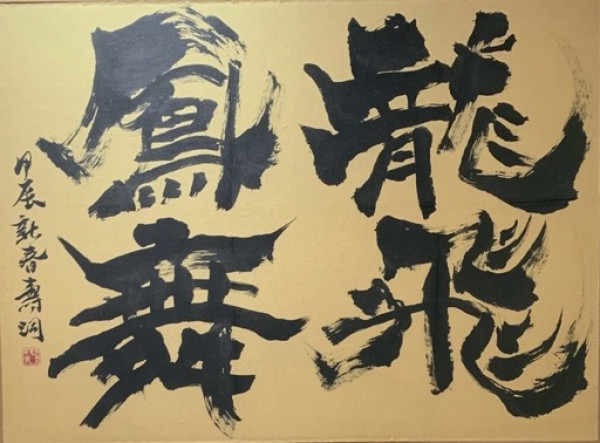 龍飛
鳳舞
甲辰新春壽洞